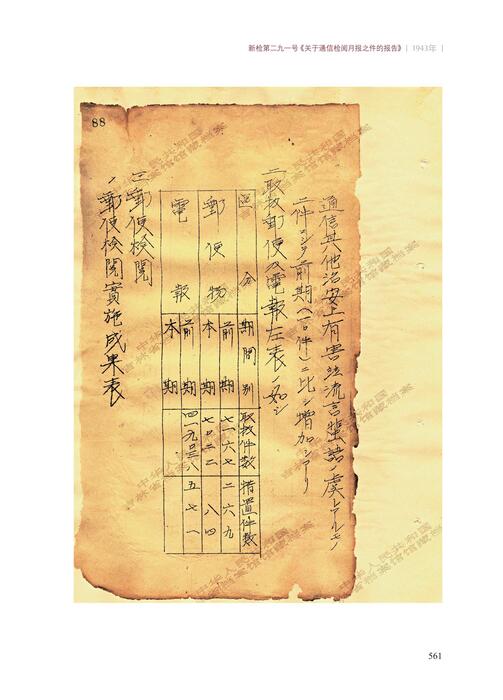 新检第二九一号《关于通信检阅月报之件的报告》 | 1943年 |
88
通信其他治安上有害ナル流言蜚語ノ虞レアルモノ
二件ニシテ前期(一〇件)ニ比シ増加シアリ
取扱郵便及電報左表ノ如シ
区分 期間別 取扱件数 措置件数
郵便物 前期 七一六七 二六九
本期 七〇二二 八四
電報 前期 五七一
本期
郵便検閲
郵便検閲實施成果表
中华人民共和国
吉林省档案馆馆藏档案
561